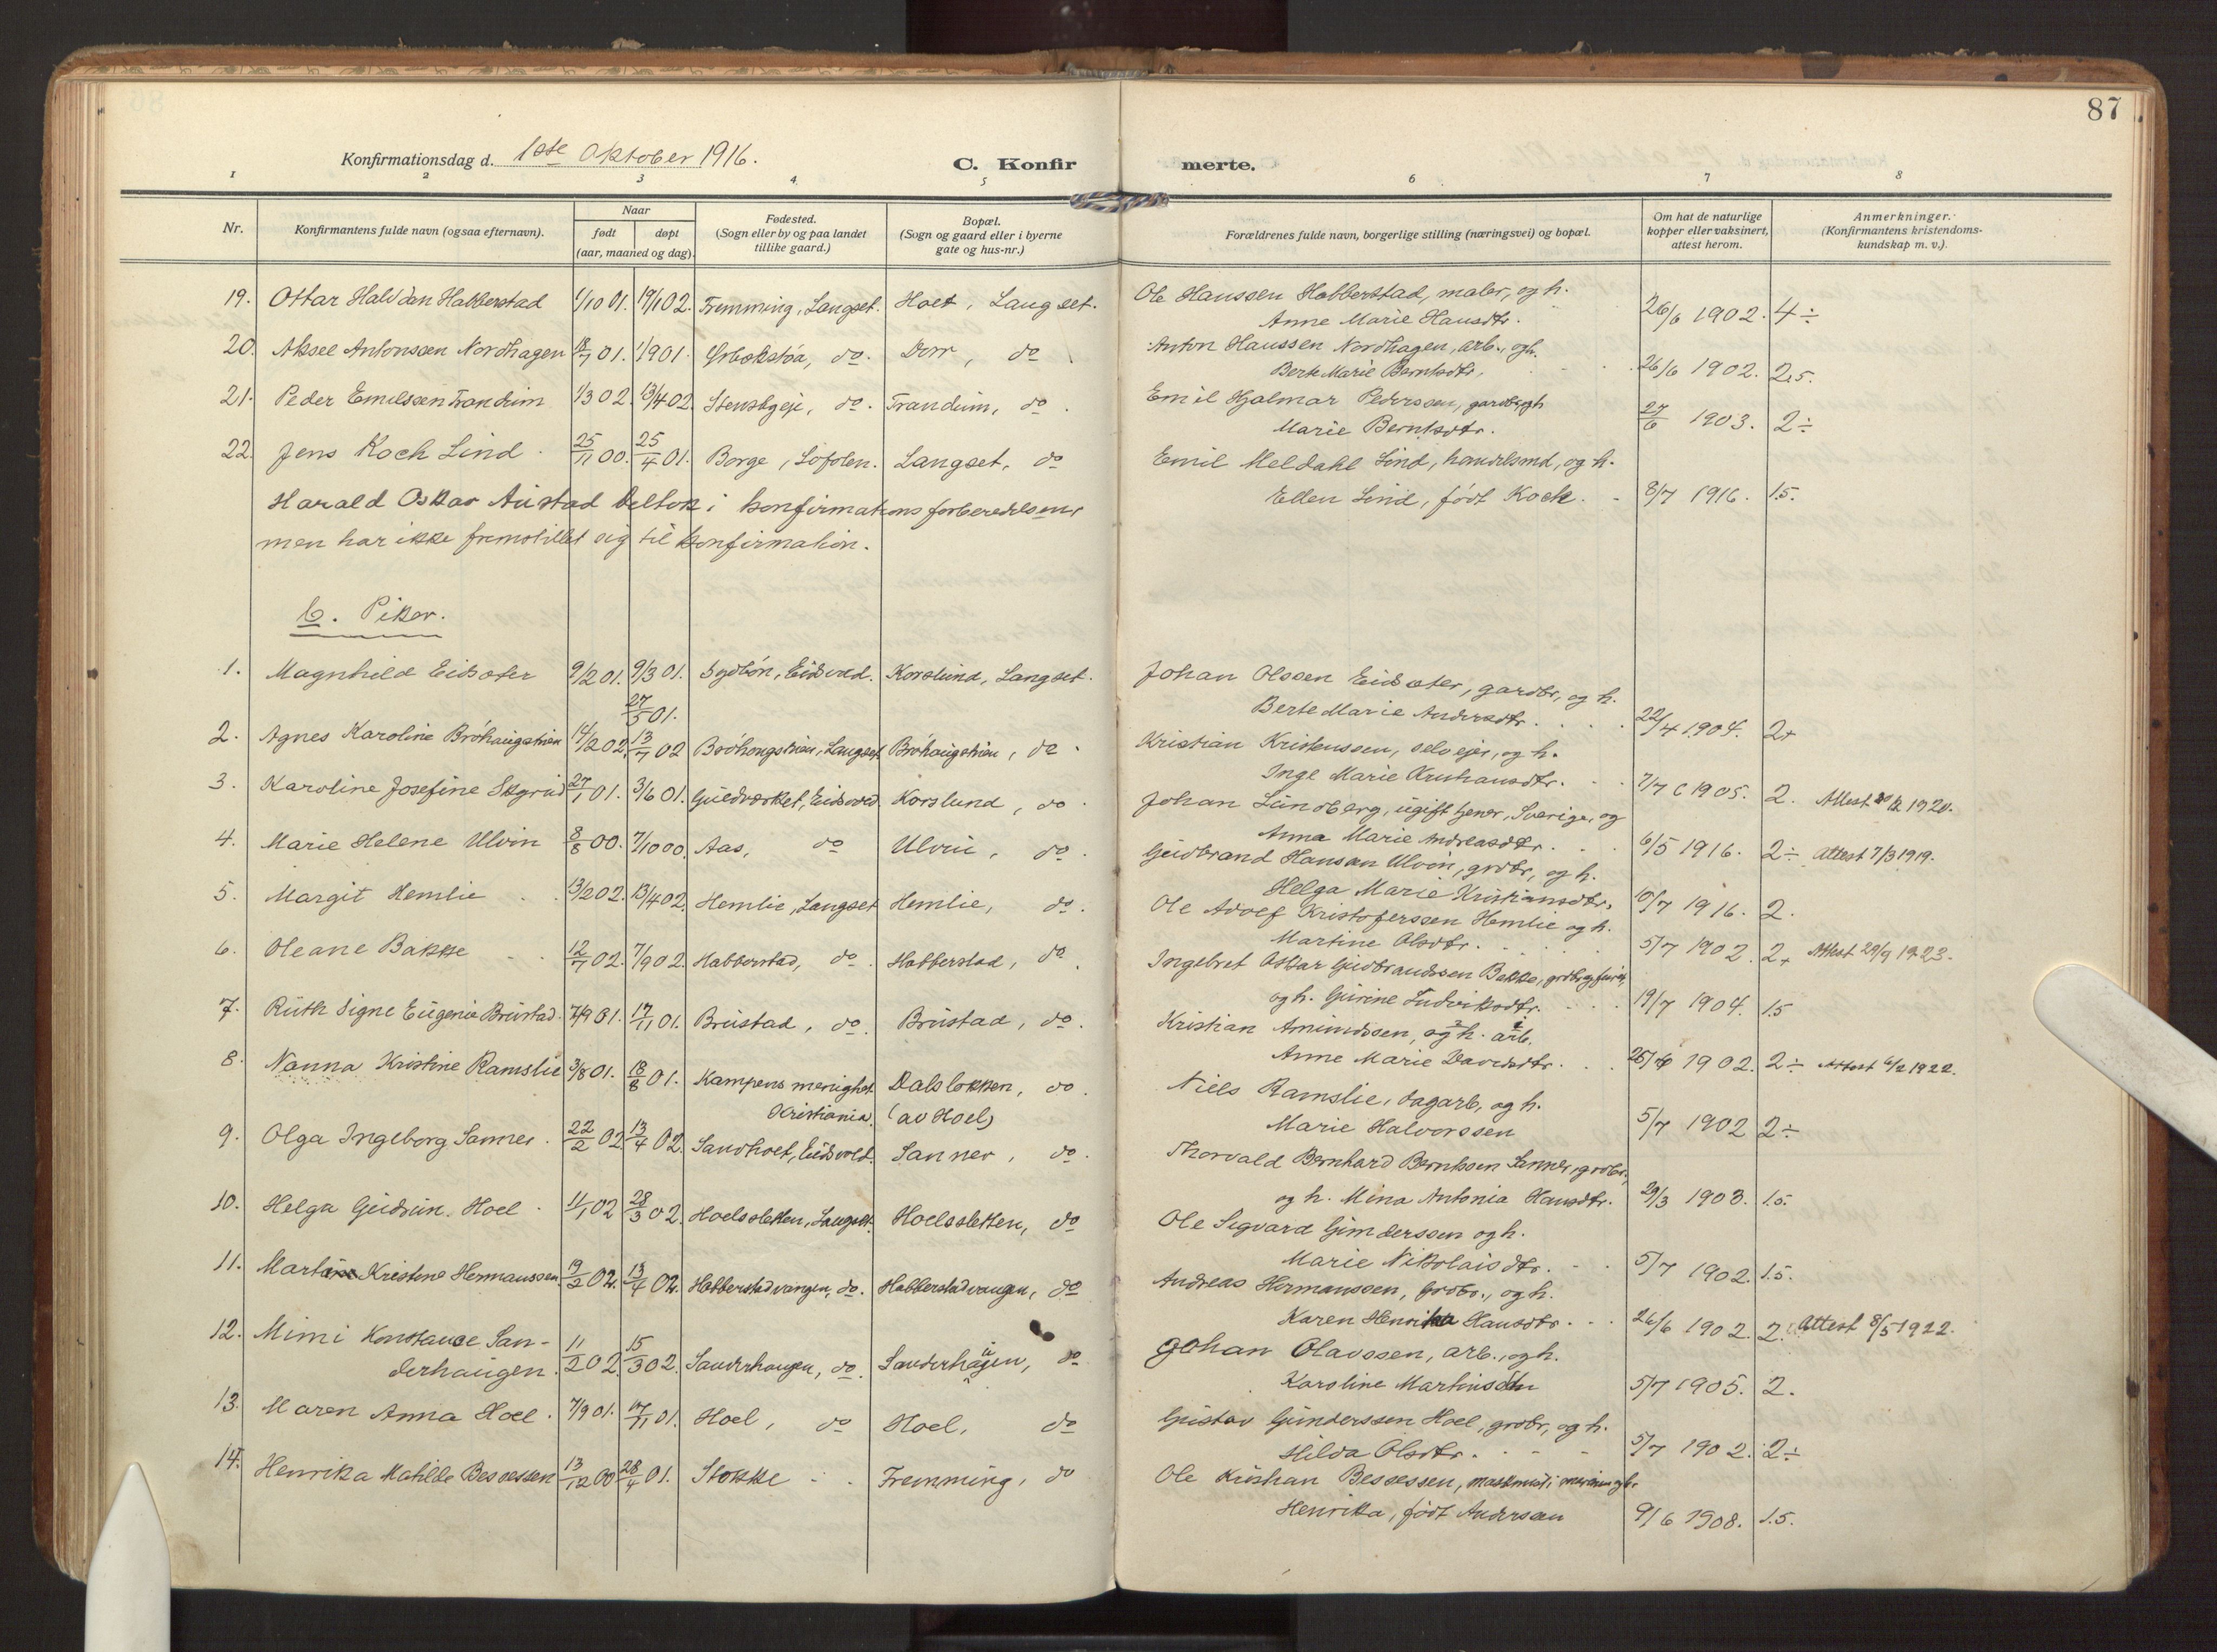 87
Konfirmationsdag d. 1ste Oktober 1916.
C. Konfirmerte.
1 2 3 4 5 6 7 8
Nr.
Konfirmantens fulde navn (ogsaa efternavn).
Naar
født
døpt
(aar, maaned og dag).
Fødested.
(Sogn eller by og paa landet
tillike gaard.)
Bopæl.
(Sogn og gaard eller i byerne
gate og hus-nr.)
Forældrenes fulde navn, borgerlige stilling (næringsvei) og bopæl.
Om hat de naturlige
kopper eller vaksinert,
attest herom.
Anmerkninger.
(Konfirmantens kristendoms-
kundskap m. v.).
19. Ottar Halvdan Habberstad 1/10 01. 19/1 02. Fremming, Langset. Hoel, Langset. Ole Hanssen Habberstad, maler, og h.
Anne Marie Hansdtr. 26/6 1902. 4÷
20. Aksel Antonssen Nordhagen 18/7 01. 1/9 01. do. Dorr, do Anton Hanssen Nordhagen, arb., og h.
Berte Marie Berntsdtr. 26/6 1902. 2.5.
21. Peder Emilssen Trandum 1/3 02. 13/4 02. Stensbgeje, do. Trandum, do. Emil Hjalmar Pederssen, gardbr, og h
Marie Berntsdtr. 27/6 1903. 2÷
22. Jens Koch Lind. 25/11 00. 25/4 01. Borge, Lofoten. Langset, do Emil Meldahl Lind, handelsmd, og h.
Ellen Lind, født Koch. 8/7 1916. 1.5.
Harald Oskar Austad deltok i konfirmationsforberedelsene
men har ikke fremstillet sig til konfirmation.
b. Piker.
1. Magnhild Eidsæter 9/2 01. 9/3 01. Sydbøn, Eidsvold. Korslund, Langset. Johan Olssen Eidsæter, gardbr, og h.
27/5 01.
Berte Marie Andersdtr. 22/4 1904. 2+
2. Agnes Karoline Brøhaugstuen 14/2 02. 13/7 02 Brøhaugstuen, Langset Brøhaugstuen, do. Kristian Kristenssen, selveier, og h.
Inge Marie Kruhausdtr. 7/7 1905. 2.
3. Karoline Josefine Skgrud 27/1 01. 3/6 01. Guldverket, Eidsvold Korslund, do. Johan Lundberg, ugift tjener, Sverige, og
Anna Marie Andreasdtr. 6/5 1916. 2÷ Attest 7/3 1919.
Attest 20/12 1920.
4. Marie Helene Ulvin 8/8 00. 7/10 00. Aas, do Ulvin, do. Gudbrand Hanssen Ulvin, grdbr, og h.
Helga Marie Kristiansdtr. 10/7 1916. 2.
5. Margit Hemlie 13/2 02. 13/4 02. Hemlie, Langset Hemlie, do. Ole Adolf Kristoferssen Hemlie og h.
Martine Olsdtr. 5/7 1902. 2+ Attest 29/9 1923.
6. Oleane Bakke 12/7 02. 7/9 02. Habberstad, do. Habberstad, do. Ingebret Oskar Gudbrandssen Bakke,
og h. Gurine Ludviksdtr. 19/7 1904. 1.5
7. Ruth Signe Eugenie Brustad. 7/9 01. 17/11 01. Brustad, do. Brustad, do. Kristian Amundssen, og h. arb.
Anne Marie Davidsdtr. 25/6 1902. 2÷ Attest 6/2 1922.
8. Nanna Kristine Ramslie 3/8 01. 18/8 01. Kampens menighet Dalsløkken, do. Niels Ramslie, dagarb, og h.
Kristiania. (av Hoel) Marie Halvorssen 5/7 1902 2÷
9. Olga Ingeborg Sanner. 22/2 02. 13/4 02. Sandholt, Eidsvold. Sanner, do. Thorvald Bernhard Berntssen Sanner, grdbr,
og h. Mina Antonia Hansdtr. 29/3 1903. 1.5.
10. Helga Gudrun Hoel. 11/1 02 28/3 02. Hoelssletten, Langset. Hoelssletten, do Ole Sigvard Gunderssen og h.
Marie Nikolaisdtr. 5/7 1902. 1.5.
11. Kristine Hermanssen 19/2 02. 13/4 02. Habberstadvangen, do. Habberstadvangen, do Andreas Hermanssen, grdbr., og h.
Karen Henrika Hansdtr. 26/6 1902. 2. Attest 8/5 1922.
12. Mimi Konstance San-
derhaugen. 11/2 02. 15/3 02. Sanderhaugen, do. Sanderhaugen, do Johan Olavssen, arb., og h.
Karoline Martinsdtr 5/7 1905. 2.
13. Maren Anna Hoel. 7/9 01. 17/11 01. Hoel, do Hoel, do Gustav Gunderssen Hoel, grdbr, og h.
Hilda Olsdtr. 5/7 1902. 2÷
14. Henrika Matilde Bessessen 13/12 00 28/4 01. Stokke Fremming, do Ole Kristian Bessessen,
Henrika, født Anderssen 9/6 1908. 1.5.